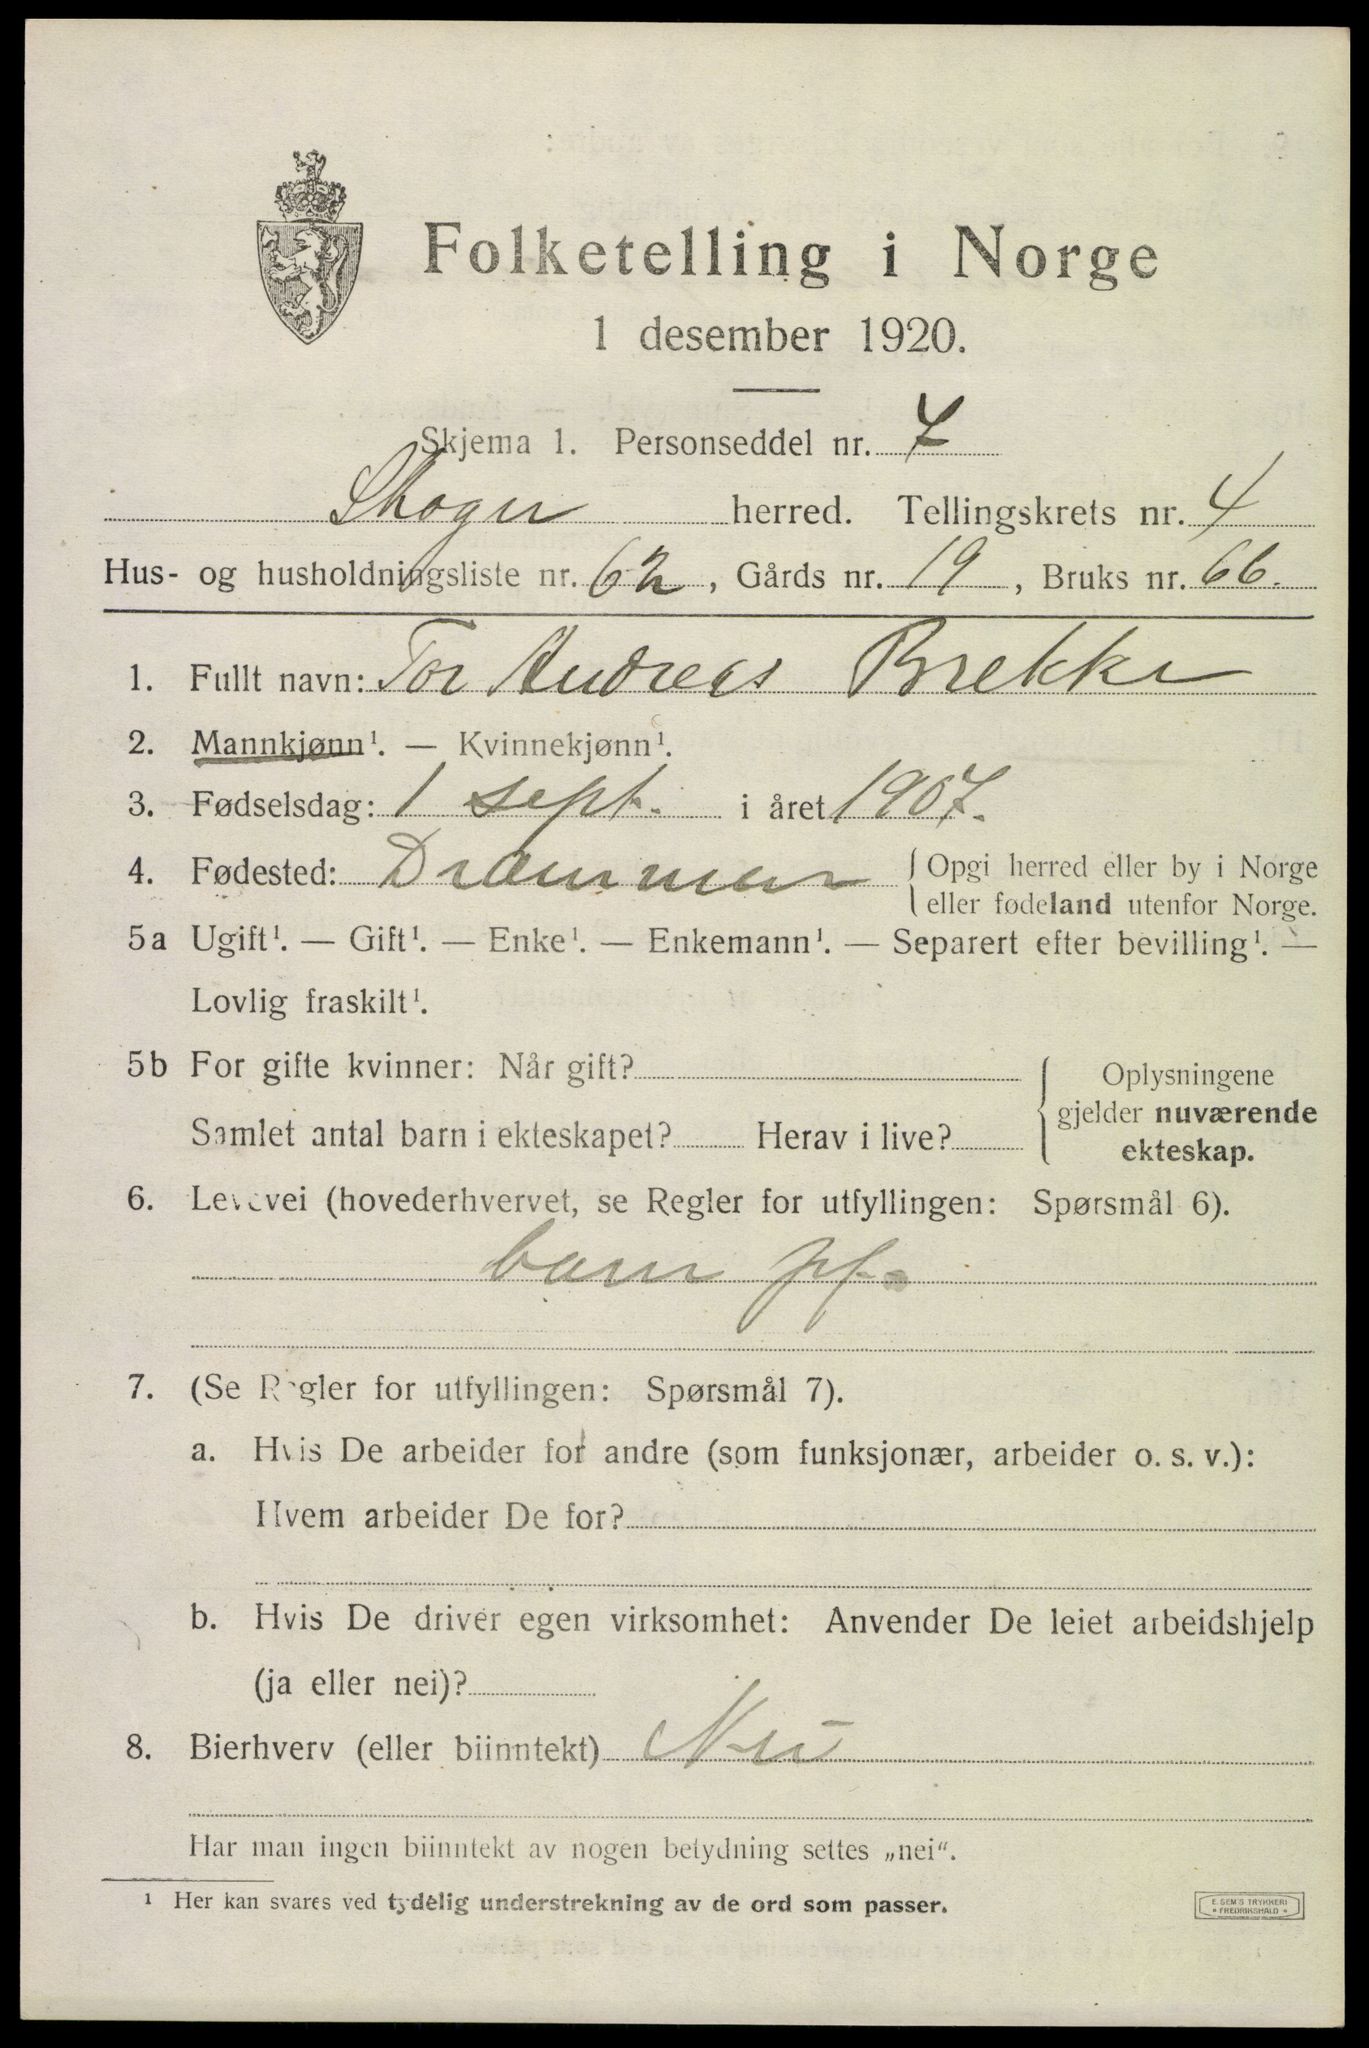 Folketelling i Norge
1 desember 1920.
Skjema 1. Personseddel nr. 7
Skoger herred. Tellingskrets nr. 4
Hus- og husholdningsliste nr. 62, Gårds nr. 19, Bruks nr. 66.
1. Fullt navn: Tor Andreas Brekke
2. Mannkjønn¹. — Kvinnekjønn¹.
3. Fødselsdag: 1 sept. i året 1907.
4. Fødested: Drammen { Opgi herred eller by i Norge
eller fødeland utenfor Norge.
5a Ugift¹. — Gift¹. — Enke¹. — Enkemann¹. — Separert efter bevilling¹. —
Lovlig fraskilt¹.
5b For gifte kvinner: Når gift?
Samlet antal barn i ekteskapet? Herav i live?
{ Oplysningene
gjelder nuværende
ekteskap.
6. Levevei (hovederhvervet, se Regler for utfyllingen: Spørsmål 6).
barn pf.
7. (Se Regler for utfyllingen: Spørsmål 7).
a. Hvis De arbeider for andre (som funksjonær, arbeider o. s. v.):
Hvem arbeider De for?
b. Hvis De driver egen virksomhet: Anvender De leiet arbeidshjelp
(ja eller nei)?
8. Bierhverv (eller biinntekt) Nei
Har man ingen biinntekt av nogen betydning settes „nei“.
¹ Her kan svares ved tydelig understrekning av de ord som passer.
E. SEM'S TRYKKERI
• FREDRIKSHALD •